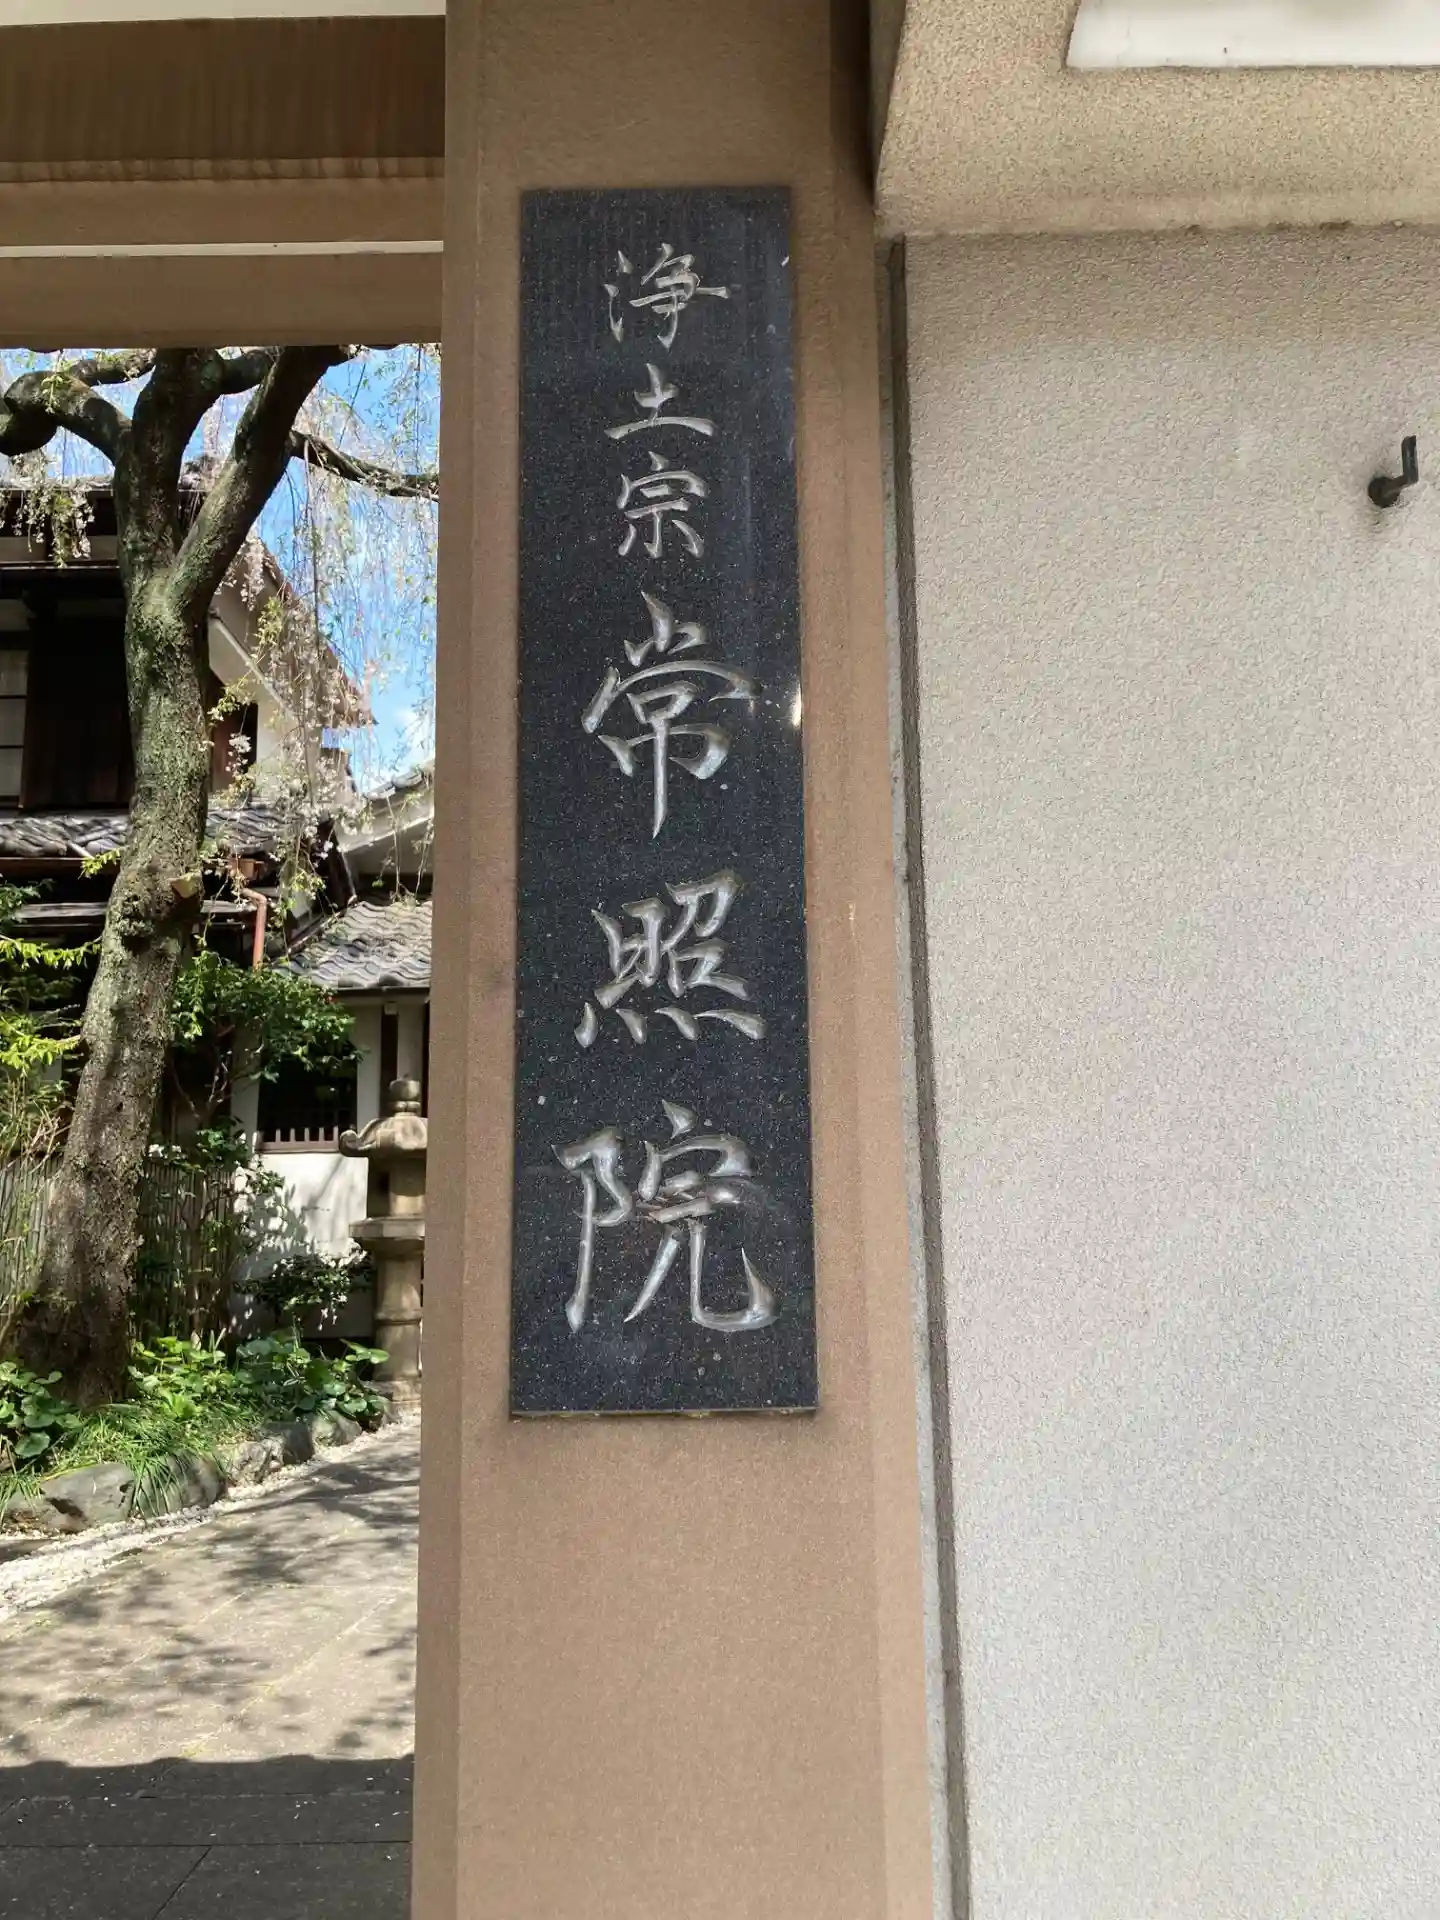 浄土宗常照院